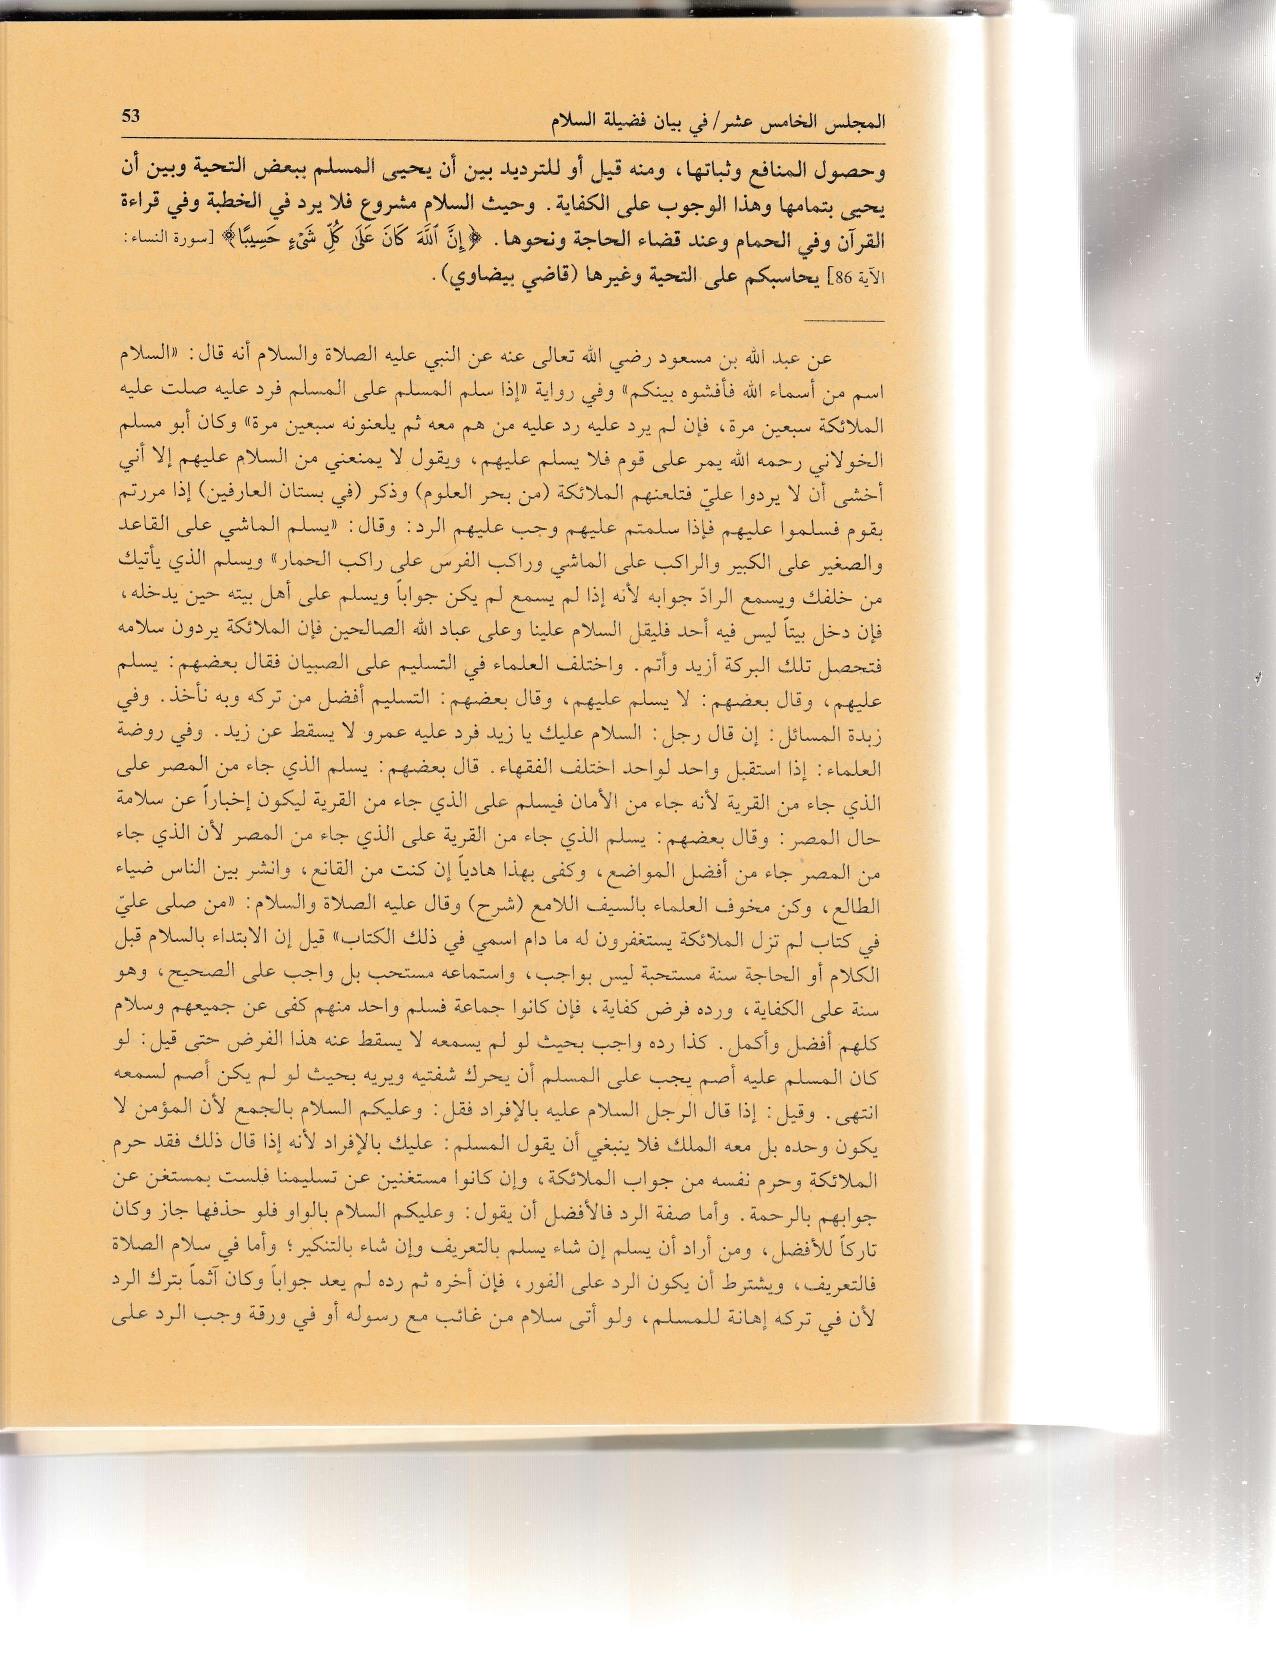 المجلس الخامس عشر/ في بيان فضيلة السلام 53
وحصول المنافع وثباتها، ومنه قيل أو للترديد بين أن يحيى المسلم ببعض التحية وبين أن
يحيى بتمامها وهذا الوجوب على الكفاية. وحيث السلام مشروع فلا يرد في الخطبة وفي قراءة
القرآن وفي الحمام وعند قضاء الحاجة ونحوها. ﴿إِنَّ ٱللَّهَ كَانَ عَلَىٰ كُلِّ شَىْءٍ حَسِيبًا﴾ [سورة النساء:
الآية 86] يحاسبكم على التحية وغيرها (قاضي بيضاوي).
عن عبد الله بن مسعود رضي الله تعالى عنه عن النبي عليه الصلاة والسلام أنه قال: «السلام
اسم من أسماء الله فأفشوه بينكم» وفي رواية «إذا سلم المسلم على المسلم فرد عليه صلت عليه
الملائكة سبعين مرة، فإن لم يرد عليه رد عليه من هم معه ثم يلعنونه سبعين مرة» وكان أبو مسلم
الخولاني رحمه الله يمر على قوم فلا يسلم عليهم، ويقول لا يمنعني من السلام عليهم إلا أني
أخشى أن لا يردوا عليّ فتلعنهم الملائكة (من بحر العلوم) وذكر (في بستان العارفين) إذا مررتم
بقوم فسلموا عليهم فإذا سلمتم عليهم وجب عليهم الرد: وقال: «يسلم الماشي على القاعد
والصغير على الكبير والراكب على الماشي وراكب الفرس على راكب الحمار» ويسلم الذي يأتيك
من خلفك ويسمع الرادّ جوابه لأنه إذا لم يسمع لم يكن جواباً ويسلم على أهل بيته حين يدخله،
فإن دخل بيتاً ليس فيه أحد فليقل السلام علينا وعلى عباد الله الصالحين فإن الملائكة يردون سلامه
فتحصل تلك البركة أزيد وأتم. واختلف العلماء في التسليم على الصبيان فقال بعضهم: يسلم
عليهم، وقال بعضهم: لا يسلم عليهم، وقال بعضهم: التسليم أفضل من تركه وبه نأخذ. وفي
زبدة المسائل: إن قال رجل: السلام عليك يا زيد فرد عليه عمرو لا يسقط عن زيد. وفي روضة
العلماء: إذا استقبل واحد لواحد اختلف الفقهاء. قال بعضهم: يسلم الذي جاء من المصر على
الذي جاء من القرية لأنه جاء من الأمان فيسلم على الذي جاء من القرية ليكون إخباراً عن سلامة
حال المصر: وقال بعضهم: يسلم الذي جاء من القرية على الذي جاء من المصر لأن الذي جاء
من المصر جاء من أفضل المواضع، وكفى بهذا هادياً إن كنت من القانع، وانشر بين الناس ضياء
الطالع، وكن مخوف العلماء بالسيف اللامع (شرح) وقال عليه الصلاة والسلام: «من صلى عليّ
في كتاب لم تزل الملائكة يستغفرون له ما دام اسمي في ذلك الكتاب» قيل إن الابتداء بالسلام قبل
الكلام أو الحاجة سنة مستحبة ليس بواجب، واستماعه مستحب بل واجب على الصحيح، وهو
سنة على الكفاية، ورده فرض كفاية، فإن كانوا جماعة فسلم واحد منهم كفى عن جميعهم وسلام
كلهم أفضل وأكمل. كذا رده واجب بحيث لو لم يسمعه لا يسقط عنه هذا الفرض حتى قيل: لو
كان المسلم عليه أصم يجب على المسلم أن يحرك شفتيه ويريه بحيث لو لم يكن أصم لسمعه
انتهى. وقيل: إذا قال الرجل السلام عليه بالإفراد فقل: وعليكم السلام بالجمع لأن المؤمن لا
يكون وحده بل معه الملك فلا ينبغي أن يقول المسلم: عليك بالإفراد لأنه إذا قال ذلك فقد حرم
الملائكة وحرم نفسه من جواب الملائكة، وإن كانوا مستغنين عن تسليمنا فلست بمستغن عن
جوابهم بالرحمة. وأما صفة الرد فالأفضل أن يقول: وعليكم السلام بالواو فلو حذفها جاز وكان
تاركاً للأفضل، ومن أراد أن يسلم إن شاء يسلم بالتعريف وإن شاء بالتنكير؛ وأما في سلام الصلاة
فالتعريف، ويشترط أن يكون الرد على الفور، فإن أخره ثم رده لم يعد جواباً وكان آثماً بترك الرد
لأن في تركه إهانة للمسلم، ولو أتى سلام من غائب مع رسوله أو في ورقة وجب الرد على